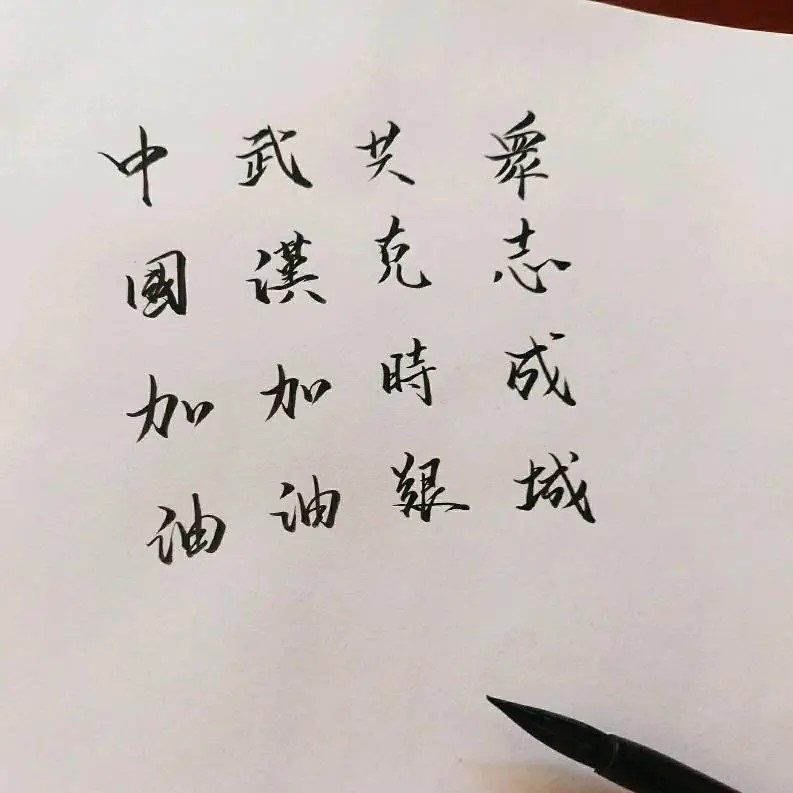 眾志成城
共克時艱
武漢加油
中國加油